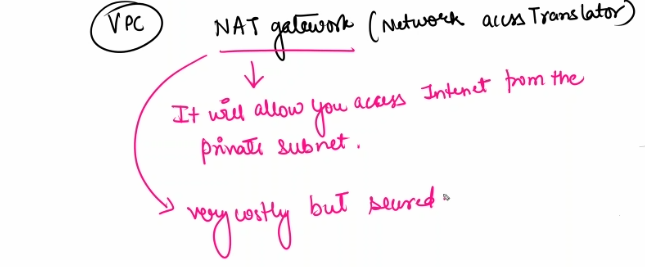 VPC NAT gatework (Network access Translator)
It will allow you access Internet from the
private subnet.
very costly but secured.